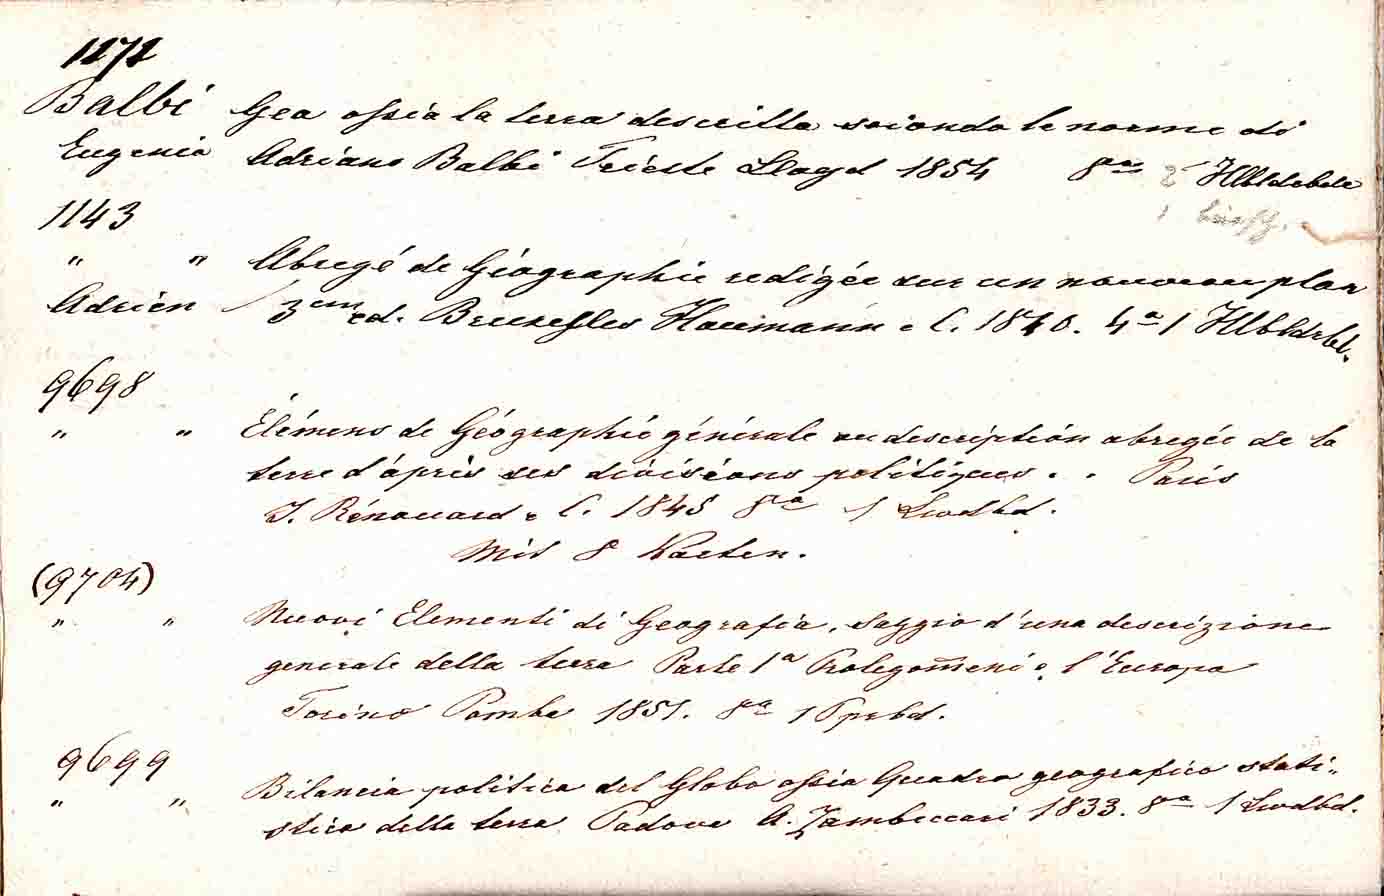 1171
Balbi Gea ossia la terra descritta secondo le norme di
Eugenio Adriano Balbi Trieste Lloyd 1854 8va 2 Hlbldrbde
1
1143
" " Abregé de Géographie redigée sur un nouveau plan
Adrien 3em ed. Bruxelles Haumann e C. 1840. 4a 1 Hlbldrbd.
9698
" " Élémens de Géographie générale ou description abregée de la
terre d'après ses divisions politiques . . Paris
J. Rénouard e C. 1843 8va 1 Lwdbd.
Mit 8 Karten.
(9704)
" " Nuovi Elementi di Geografia, saggio d'una descrizione
generale della terra Parte 1a Prolegomeni e l'Europa
Torino Pomba 1851. 8va 1 Ppebd.
9699
" " Bilancia politica del Globo ossia Quadro geografico stati„
stico della terra Padova A. Zambeccari 1833. 8va 1 Lwdbd.